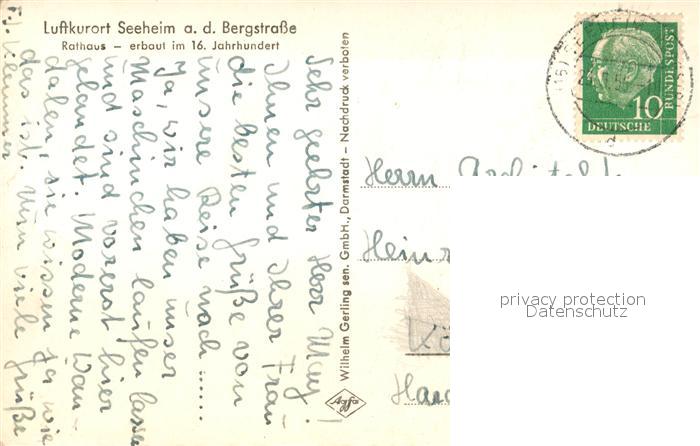 Luftkurort Seeheim a. d. Bergstraße
Rathaus – erbaut im 16. Jahrhundert
Sehr geehrter Herr May!
Ihnen und Ihrer Frau
die besten Grüße von
unsere Reise nach ......
Ja, wir haben unser
Maschinchen laufen lassen
und sind vorerst hier
gelandet. Moderne Wan-
dalen, sie wissen ja wie
das ist. Nun viele Grüße
Wilhelm Gerling sen. GmbH., Darmstadt – Nachdruck verboten
Agfa
10
DEUTSCHE
BUNDESPOST
(16)
Herrn
Hein
privacy protection
Datenschutz